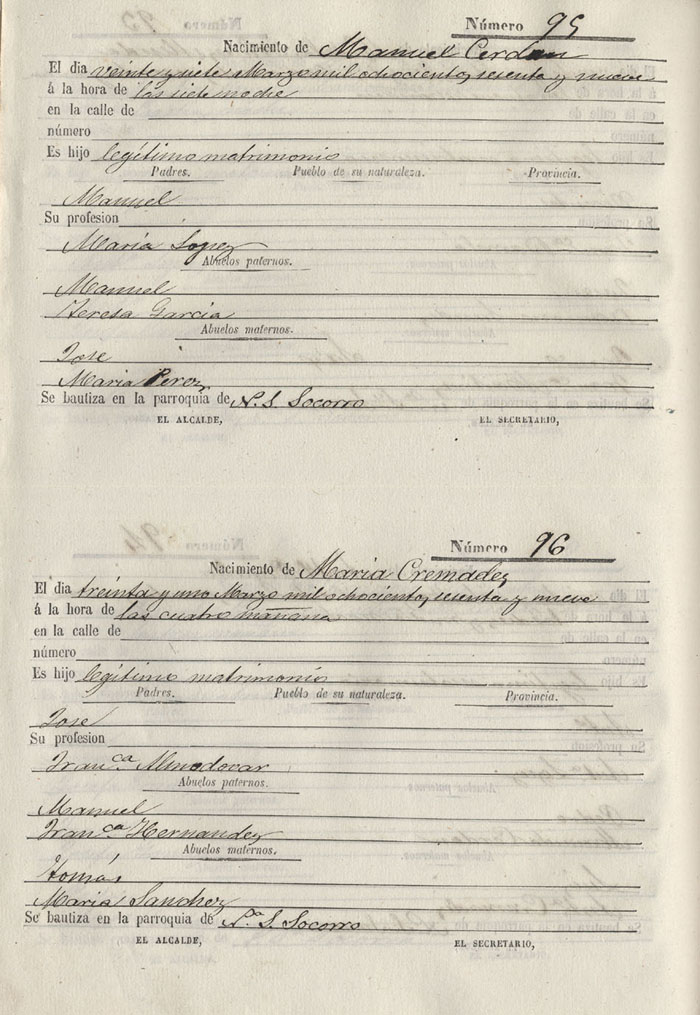 Número 95
Nacimiento de Manuel Cerdan
El dia veinte y siete Marzo mil ochociento, sesenta y nueve
á la hora de las siete noche
en la calle de
número
Es hijo legítimo matrimonio
Padres. Pueblo de su naturaleza. Provincia.
Manuel
Su profesion
Maria Lopez
Abuelos paternos.
Manuel
Teresa Garcia
Abuelos maternos.
Jose
Maria Perez
Se bautiza en la parroquia de N. S. Socorro
EL ALCALDE, EL SECRETARIO,
Número 96
Nacimiento de Maria Cremadez
El dia treinta y uno Marzo mil ochociento, sesenta y nueve
á la hora de las cuatro mañana
en la calle de
número
Es hijo legítimo matrimonio
Padres. Pueblo de su naturaleza. Provincia.
Jose
Su profesion
Fran.ca Almodovar
Abuelos paternos.
Manuel
Fran.ca Hernandez
Abuelos maternos.
Tomás
Maria Sanchez
Se bautiza en la parroquia de N.a S. Socorro
EL ALCALDE, EL SECRETARIO,